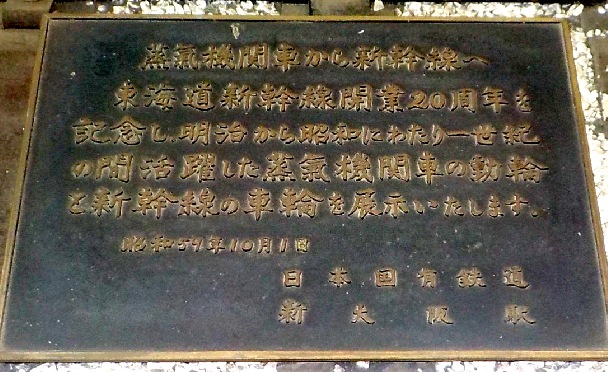 蒸氣機関車から新幹線へ
東海道新幹線開業20周年を
記念し、明治から昭和にわたり一世紀
の間活躍した蒸氣機関車の動輪
と新幹線の車輪を展示いたします。
昭和59年10月1日
日本国有鉄道
新大阪駅